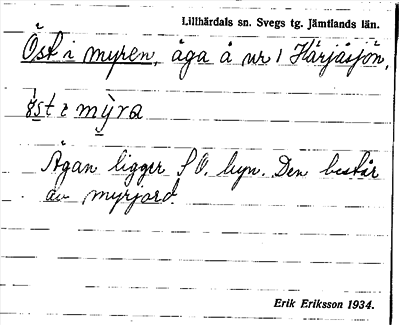 Lillhärdals sn. Svegs tg. Jämtlands län.
Öst i myren, äga å nr 1 Härjåsjön.
öst i mỳra
Ägan ligger S O. byn. Den består
av myrjord.
Erik Eriksson 1934.